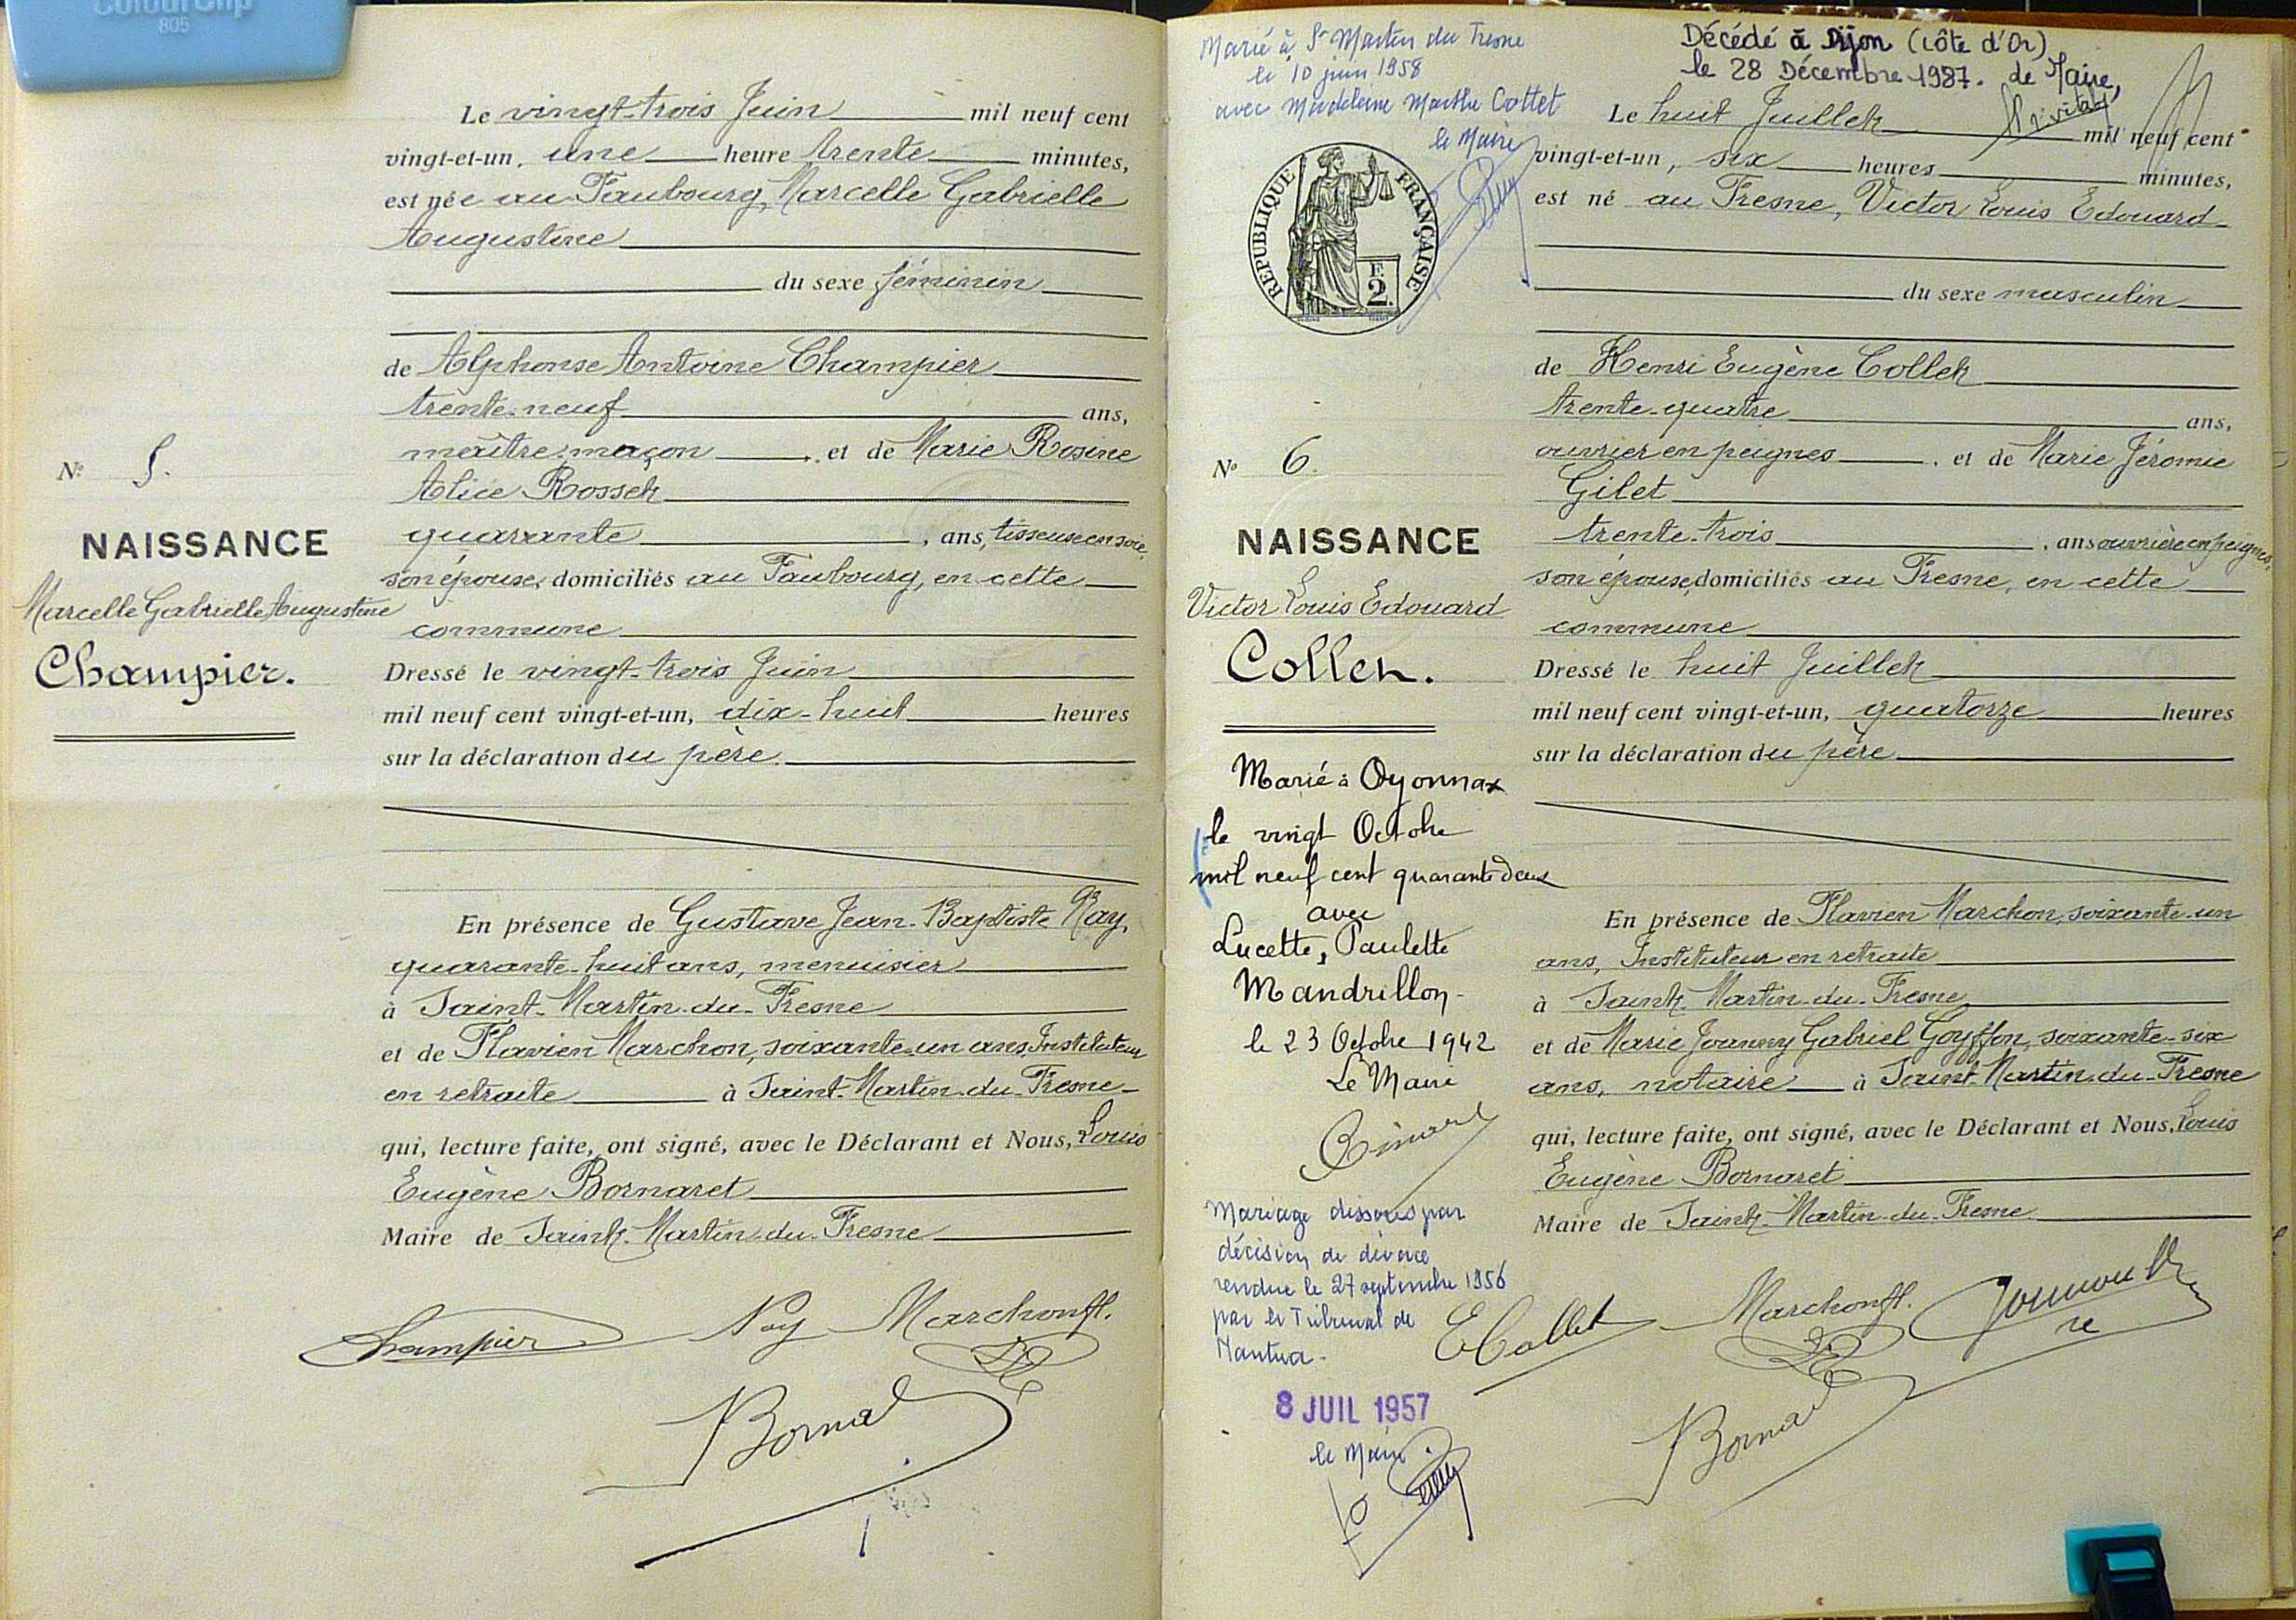 ColourClip
805
Le vingt-trois Juin mil neuf cent
vingt-et-un, une heure trente minutes,
est née au Faubourg, Marcelle Gabrielle
Augustine
du sexe féminin
de Alphonse Antoine Champier
trente-neuf ans,
maître-maçon, et de Marie Rosine
Alice Rosset
quarante, ans, tisseuse en soie,
son épouse, domiciliés au Faubourg, en cette
commune
Dressé le vingt-trois Juin
mil neuf cent vingt-et-un, dix-huit heures
sur la déclaration du père.
En présence de Gustave Jean-Baptiste Ray,
quarante-huit ans, menuisier
à Saint-Martin-du-Fresne
et de Flavien Marchon, soixante-un ans, Instituteur
en retraite à Saint-Martin-du-Fresne
qui, lecture faite, ont signé, avec le Déclarant et Nous, Louis
Eugène Bornaret
Maire de Saint-Martin-du-Fresne
N° 5.
NAISSANCE
Marcelle Gabrielle Augustine
Champier.
Champier Ray Marchon fl.
Marié à St Martin du Fresne
le 10 juin 1958
avec Madeleine Marthe Cottet
le Maire
Décédé à Dijon (Côte d'Or)
le 28 Décembre 1987. Le Maire,
REPUBLIQUE FRANÇAISE
F.
2.
Le huit Juillet mil neuf cent
vingt-et-un, six heures minutes,
est né au Fresne, Victor Louis Edouard
du sexe masculin
de Henri Eugène Collet
trente-quatre ans,
ouvrier en peignes, et de Marie Jéromie
Gilet
trente-trois, ans ouvrière en peignes,
son épouse, domiciliés au Fresne, en cette
commune
Dressé le huit Juillet
mil neuf cent vingt-et-un, quatorze heures
sur la déclaration du père
En présence de Flavien Marchon, soixante-un
ans, Instituteur en retraite
à Saint-Martin-du-Fresne
et de Marie Joanny Gabriel Goyffon, soixante-six
ans, notaire à Saint-Martin-du-Fresne
qui, lecture faite, ont signé, avec le Déclarant et Nous, Louis
Eugène Bornaret
Maire de Saint-Martin-du-Fresne
N° 6.
NAISSANCE
Victor Louis Edouard
Collet.
Marié à Oyonnax
le vingt Octobre
mil neuf cent quarante deux
avec
Lucette, Paulette
Mandrillon
le 23 Octobre 1942
Le Maire
Mariage dissous par
décision de divorce
rendue le 27 septembre 1956
par le Tribunal de
Nantua.
8 JUIL 1957
le Maire
E Collet Marchon fl.